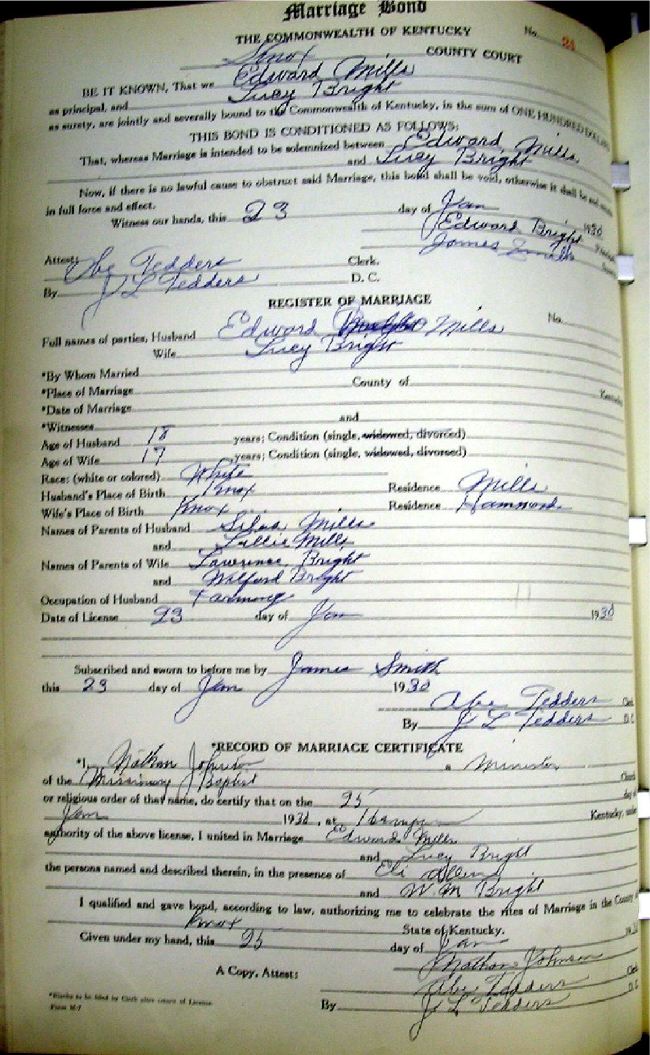 Marriage Bond
THE COMMONWEALTH OF KENTUCKY No. 24
Knox COUNTY COURT
BE IT KNOWN, That we Edward Mills
as principal, and Lucy Bright
as surety, are jointly and severally bound to the Commonwealth of Kentucky, in the sum of ONE HUNDRED DOLLARS
THIS BOND IS CONDITIONED AS FOLLOWS:
That, whereas Marriage is intended to be solemnized between Edward Mills
and Lucy Bright
Now, if there is no lawful cause to obstruct said Marriage, this bond shall be void, otherwise it shall be and
in full force and effect.
Witness our hands, this 23 day of Jan 1930
Edward Bright
James Smith
Attest: Abe Tedders Clerk.
By J L Tedders D. C.
REGISTER OF MARRIAGE
No.
Full names of parties, Husband Edward Mills
Wife Lucy Bright
*By Whom Married
*Place of Marriage County of Kentucky
*Date of Marriage
*Witnesses and
Age of Husband 18 years; Condition (single, widowed, divorced)
Age of Wife 17 years; Condition (single, widowed, divorced)
Race: (white or colored) White
Husband's Place of Birth Knox Residence Mills
Wife's Place of Birth Knox Residence Hammonds
Names of Parents of Husband Silas Mills
and Lillie Mills
Names of Parents of Wife Lawrence Bright
and Wilford Bright
Occupation of Husband Farming
Date of License 23 day of Jan 1930
Subscribed and sworn to before me by James Smith
this 23 day of Jan 1930
Abe Tedders Clerk
By J L Tedders D.C.
*RECORD OF MARRIAGE CERTIFICATE
*I, Nathan Johnson a Minister
of the Missionary Baptist Church
or religious order of that name, do certify that on the 25 day of
Jan 1930, at Kentucky, under
authority of the above license, I united in Marriage Edward Mills
and Lucy Bright
the persons named and described therein, in the presence of Eli
and W M Bright
I qualified and gave bond, according to law, authorizing me to celebrate the rites of Marriage in the County of
Knox State of Kentucky.
Given under my hand, this 25 day of Jan 1930
Nathan Johnson
A Copy, Attest: Abe Tedders Clerk
By J L Tedders D.C.
*Blanks to be filled by Clerk after return of License.
Form M-7